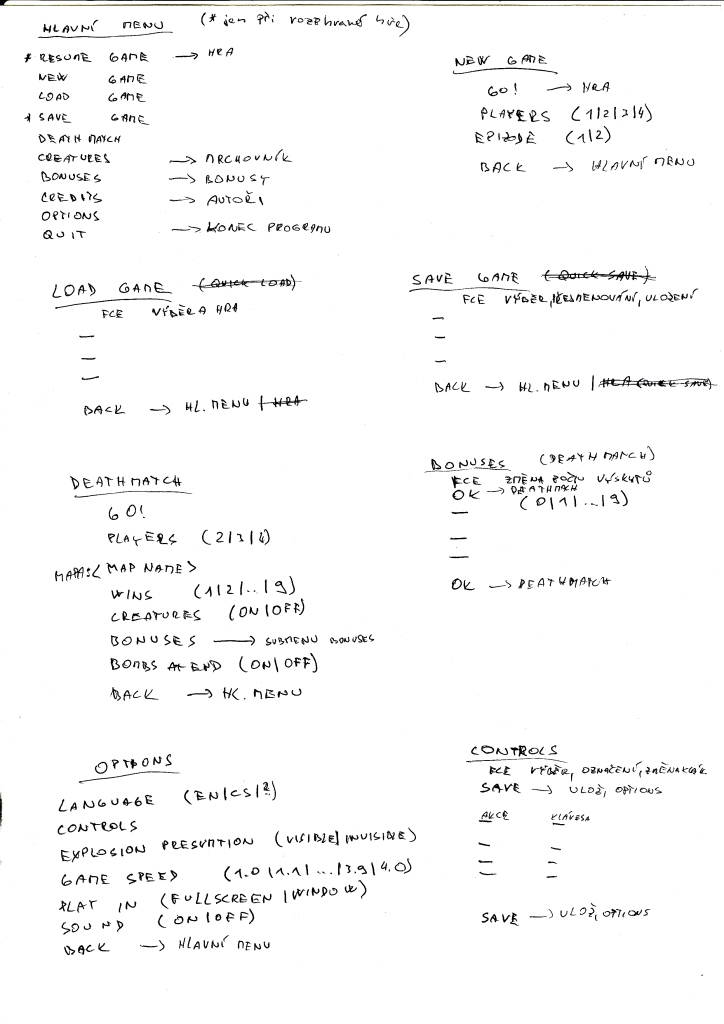 HLAVNÍ MENU (* jen při rozehrané hře)
* RESUME GAME → HRA
NEW GAME
LOAD GAME
* SAVE GAME
DEATHMATCH
CREATURES → MRCHOVNÍK
BONUSES → BONUSY
CREDITS → AUTOŘI
OPTIONS
QUIT → KONEC PROGRAMU
NEW GAME
GO! → HRA
PLAYERS (1|2|3|4)
EPIZODE (1|2)
BACK → HLAVNÍ MENU
LOAD GAME (QUICK LOAD)
FCE VÝBĚR A HRA
—
—
—
BACK → HL. MENU | HRA
SAVE GAME (QUICK SAVE)
FCE VÝBĚR, PŘEJMENOVÁNÍ, ULOŽENÍ
—
—
—
BACK → HL. MENU | HRA (QUICK SAVE)
DEATHMATCH
GO!
PLAYERS (2|3|4)
MAPA: <MAP NAME>
WINS (1|2|..|9)
CREATURES (ON|OFF)
BONUSES → SUBMENU BONUSES
BOMBS AT END (ON|OFF)
BACK → HL. MENU
BONUSES (DEATHMATCH)
FCE ZMĚNA POČTU VÝSKYTŮ
OK → DEATHMATCH
(0|1|...|9)
—
—
—
OK → DEATHMATCH
OPTIONS
LANGUAGE (EN|CS|?)
CONTROLS
EXPLOSION (VISIBLE|INVISIBLE)
GAME SPEED (1.0|1.1|...|3.9|4.0)
PLAY IN (FULLSCREEN|WINDOW)
SOUND (ON|OFF)
BACK → HLAVNÍ MENU
CONTROLS
FCE VÝBĚR, OZNAČENÍ, ZMĚNA KLÁV.
SAVE → ULOŽ, OPTIONS
AKCE KLÁVESA
— —
— —
— —
SAVE → ULOŽ, OPTIONS